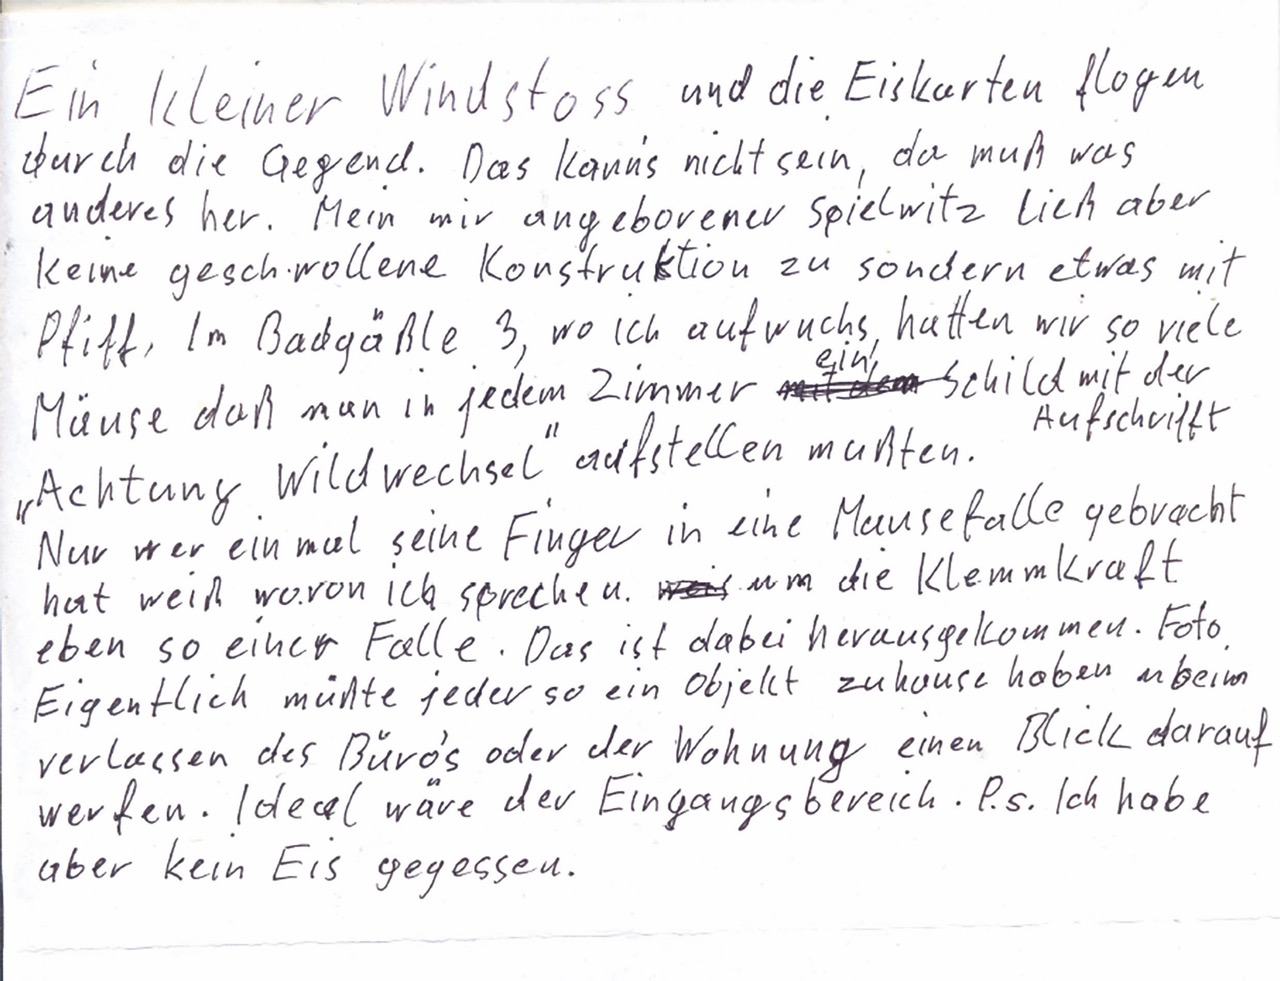 Ein kleiner Windstoss und die Eiskarten flogen
durch die Gegend. Das kann's nicht sein, da muß was
anderes her. Mein mir angeborener Spielwitz ließ aber
keine geschwollene Konstruktion zu sondern etwas mit
Pfiff. Im Badgäßle 3, wo ich aufwuchs, hatten wir so viele
Mäuse daß man in jedem Zimmer ein Schild mit der
Aufschrifft
„Achtung Wildwechsel" aufstellen mußten.
Nur wer einmal seine Finger in eine Mausefalle gebracht
hat weiß wovon ich sprechen. um die Klemmkraft
eben so einer Falle. Das ist dabei herausgekommen. Foto
Eigentlich müßte jeder so ein Objekt zuhause haben u beim
verlassen des Büro's oder der Wohnung einen Blick darauf
werfen. Ideal wäre der Eingangsbereich. P.s. Ich habe
aber kein Eis gegessen.